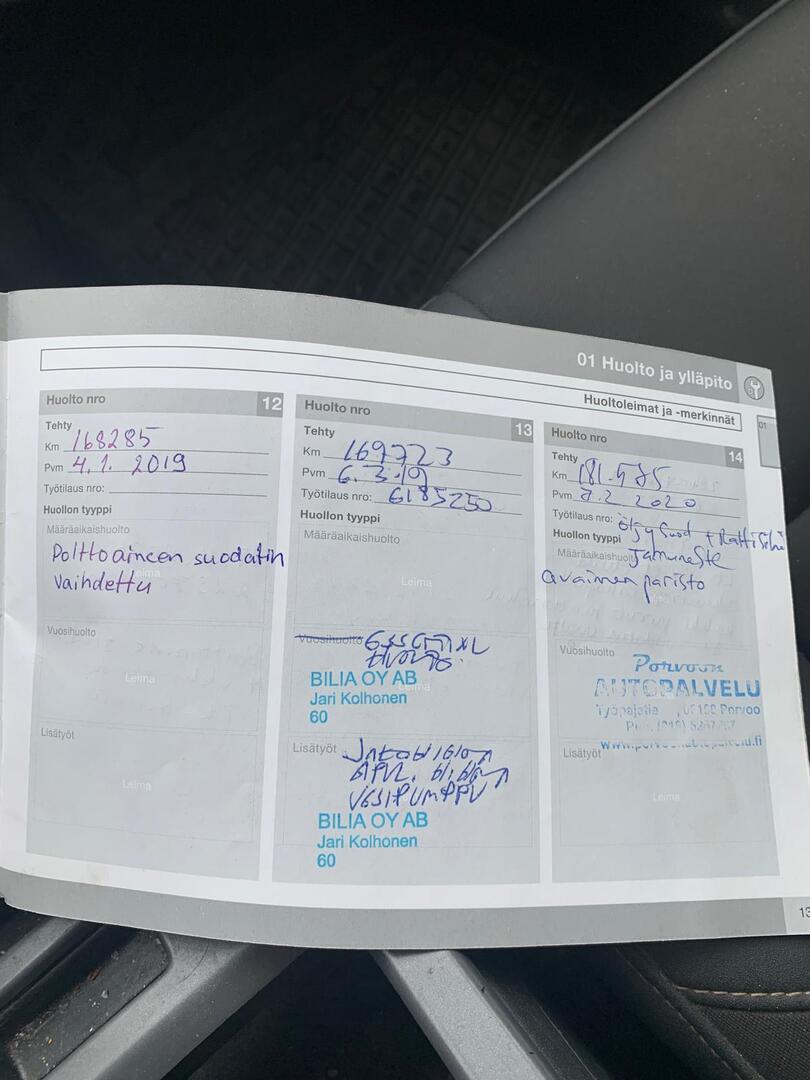 01 Huolto ja ylläpito
Huoltoleimat ja -merkinnät
01
Huolto nro 12
Tehty
Km 168285
Pvm 4.1. 2019
Työtilaus nro:
Huollon tyyppi
Määräaikaishuolto
Polttoaineen suodatin
vaihdettu
Leima
Vuosihuolto
Leima
Lisätyöt
Leima
Huolto nro 13
Tehty
Km 169723
Pvm 6.3.19
Työtilaus nro: 6185250
Huollon tyyppi
Määräaikaishuolto
Leima
Vuosihuolto
Leima
BILIA OY AB
Jari Kolhonen
60
Lisätyöt
VESIPUMPPU
BILIA OY AB
Jari Kolhonen
60
Huolto nro 14
Tehty
Km 181.575
Pvm 7.2 2020
Työtilaus nro: öljysuod +
Huollon tyyppi
Määräaikaishuolto
avaimen paristo
Vuosihuolto
Porvoon
AUTOPALVELU
Porvoo
Lisätyöt
Leima
13